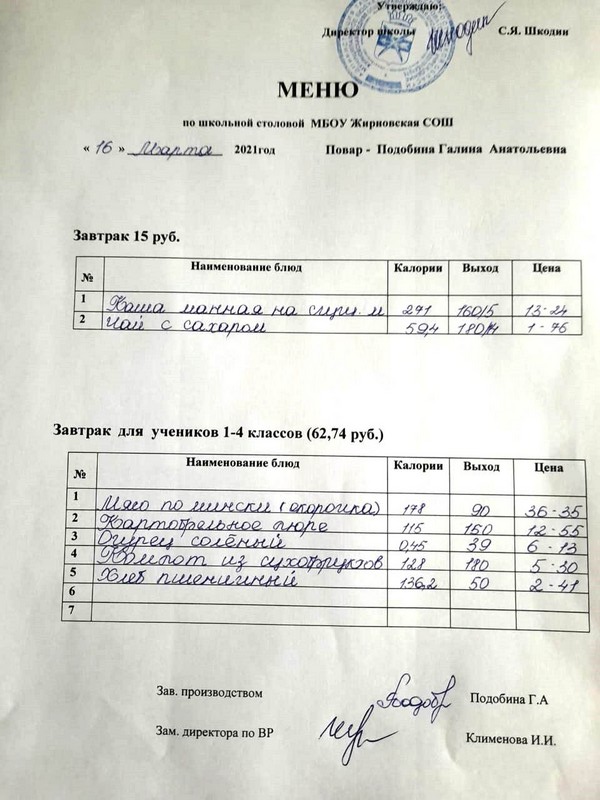 Утверждаю:
Директор школы С.Я. Шкодин
МЕНЮ
по школьной столовой МБОУ Жирновская СОШ
« 16 » Марта 2021год Повар - Подобина Галина Анатольевна
Завтрак 15 руб.
№ Наименование блюд Калории Выход Цена
1 Каша манная на сгущ. м 271 160/5 13-24
2 Чай с сахаром 59,4 180/14 1-76
Завтрак для учеников 1-4 классов (62,74 руб.)
№ Наименование блюд Калории Выход Цена
1 Мясо по мински (окорочка) 178 90 36-35
2 Картофельное пюре 115 150 12-55
3 Огурец солёный 0,45 39 6-13
4 Компот из сухофруктов 128 180 5-30
5 Хлеб пшеничный 136,2 50 2-41
6
7
Зав. производством Подобина Г.А
Зам. директора по ВР Клименова И.И.